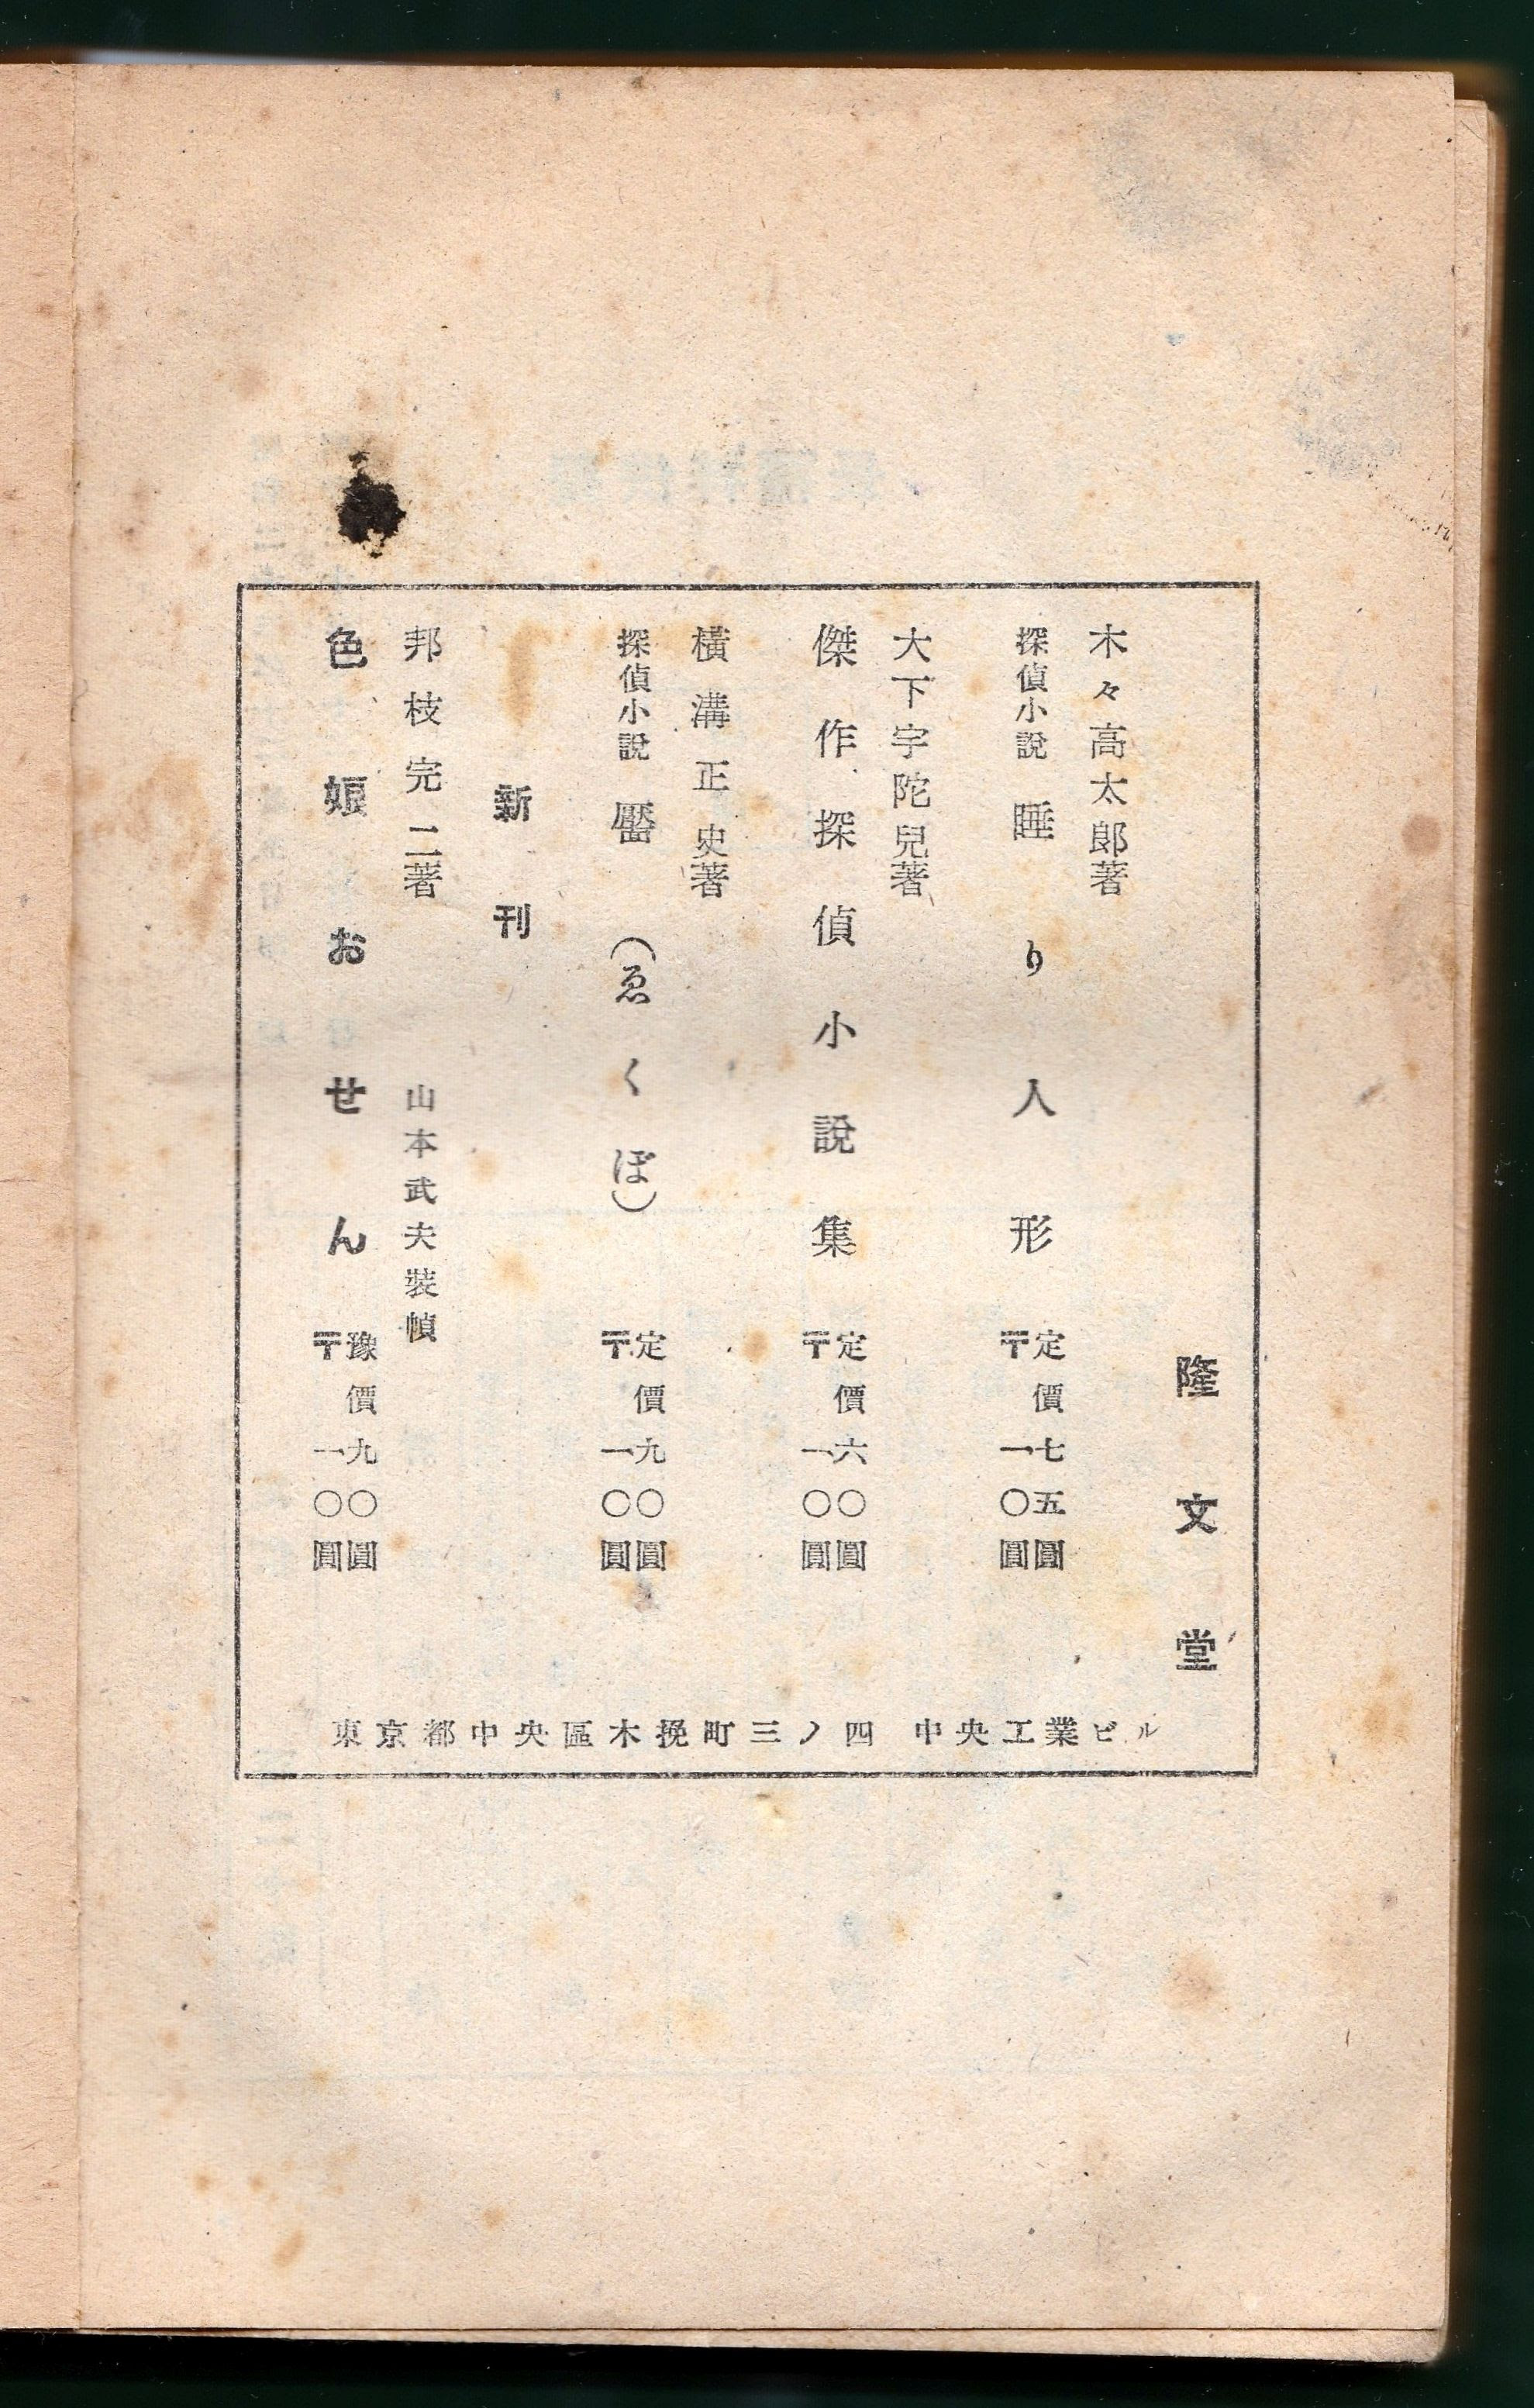 隆文堂
木々高太郎著
探偵小說 睡り人形 定價七五圓
〒一〇圓
大下宇陀兒著
傑作探偵小說集 定價六〇圓
〒一〇圓
橫溝正史著
探偵小說 靨(ゑくぼ) 定價九〇圓
〒一〇圓
新刊
邦枝完二著 山本武夫裝幀
色娘おせん 豫價九〇圓
〒一〇圓
東京都中央區木挽町三ノ四 中央工業ビル